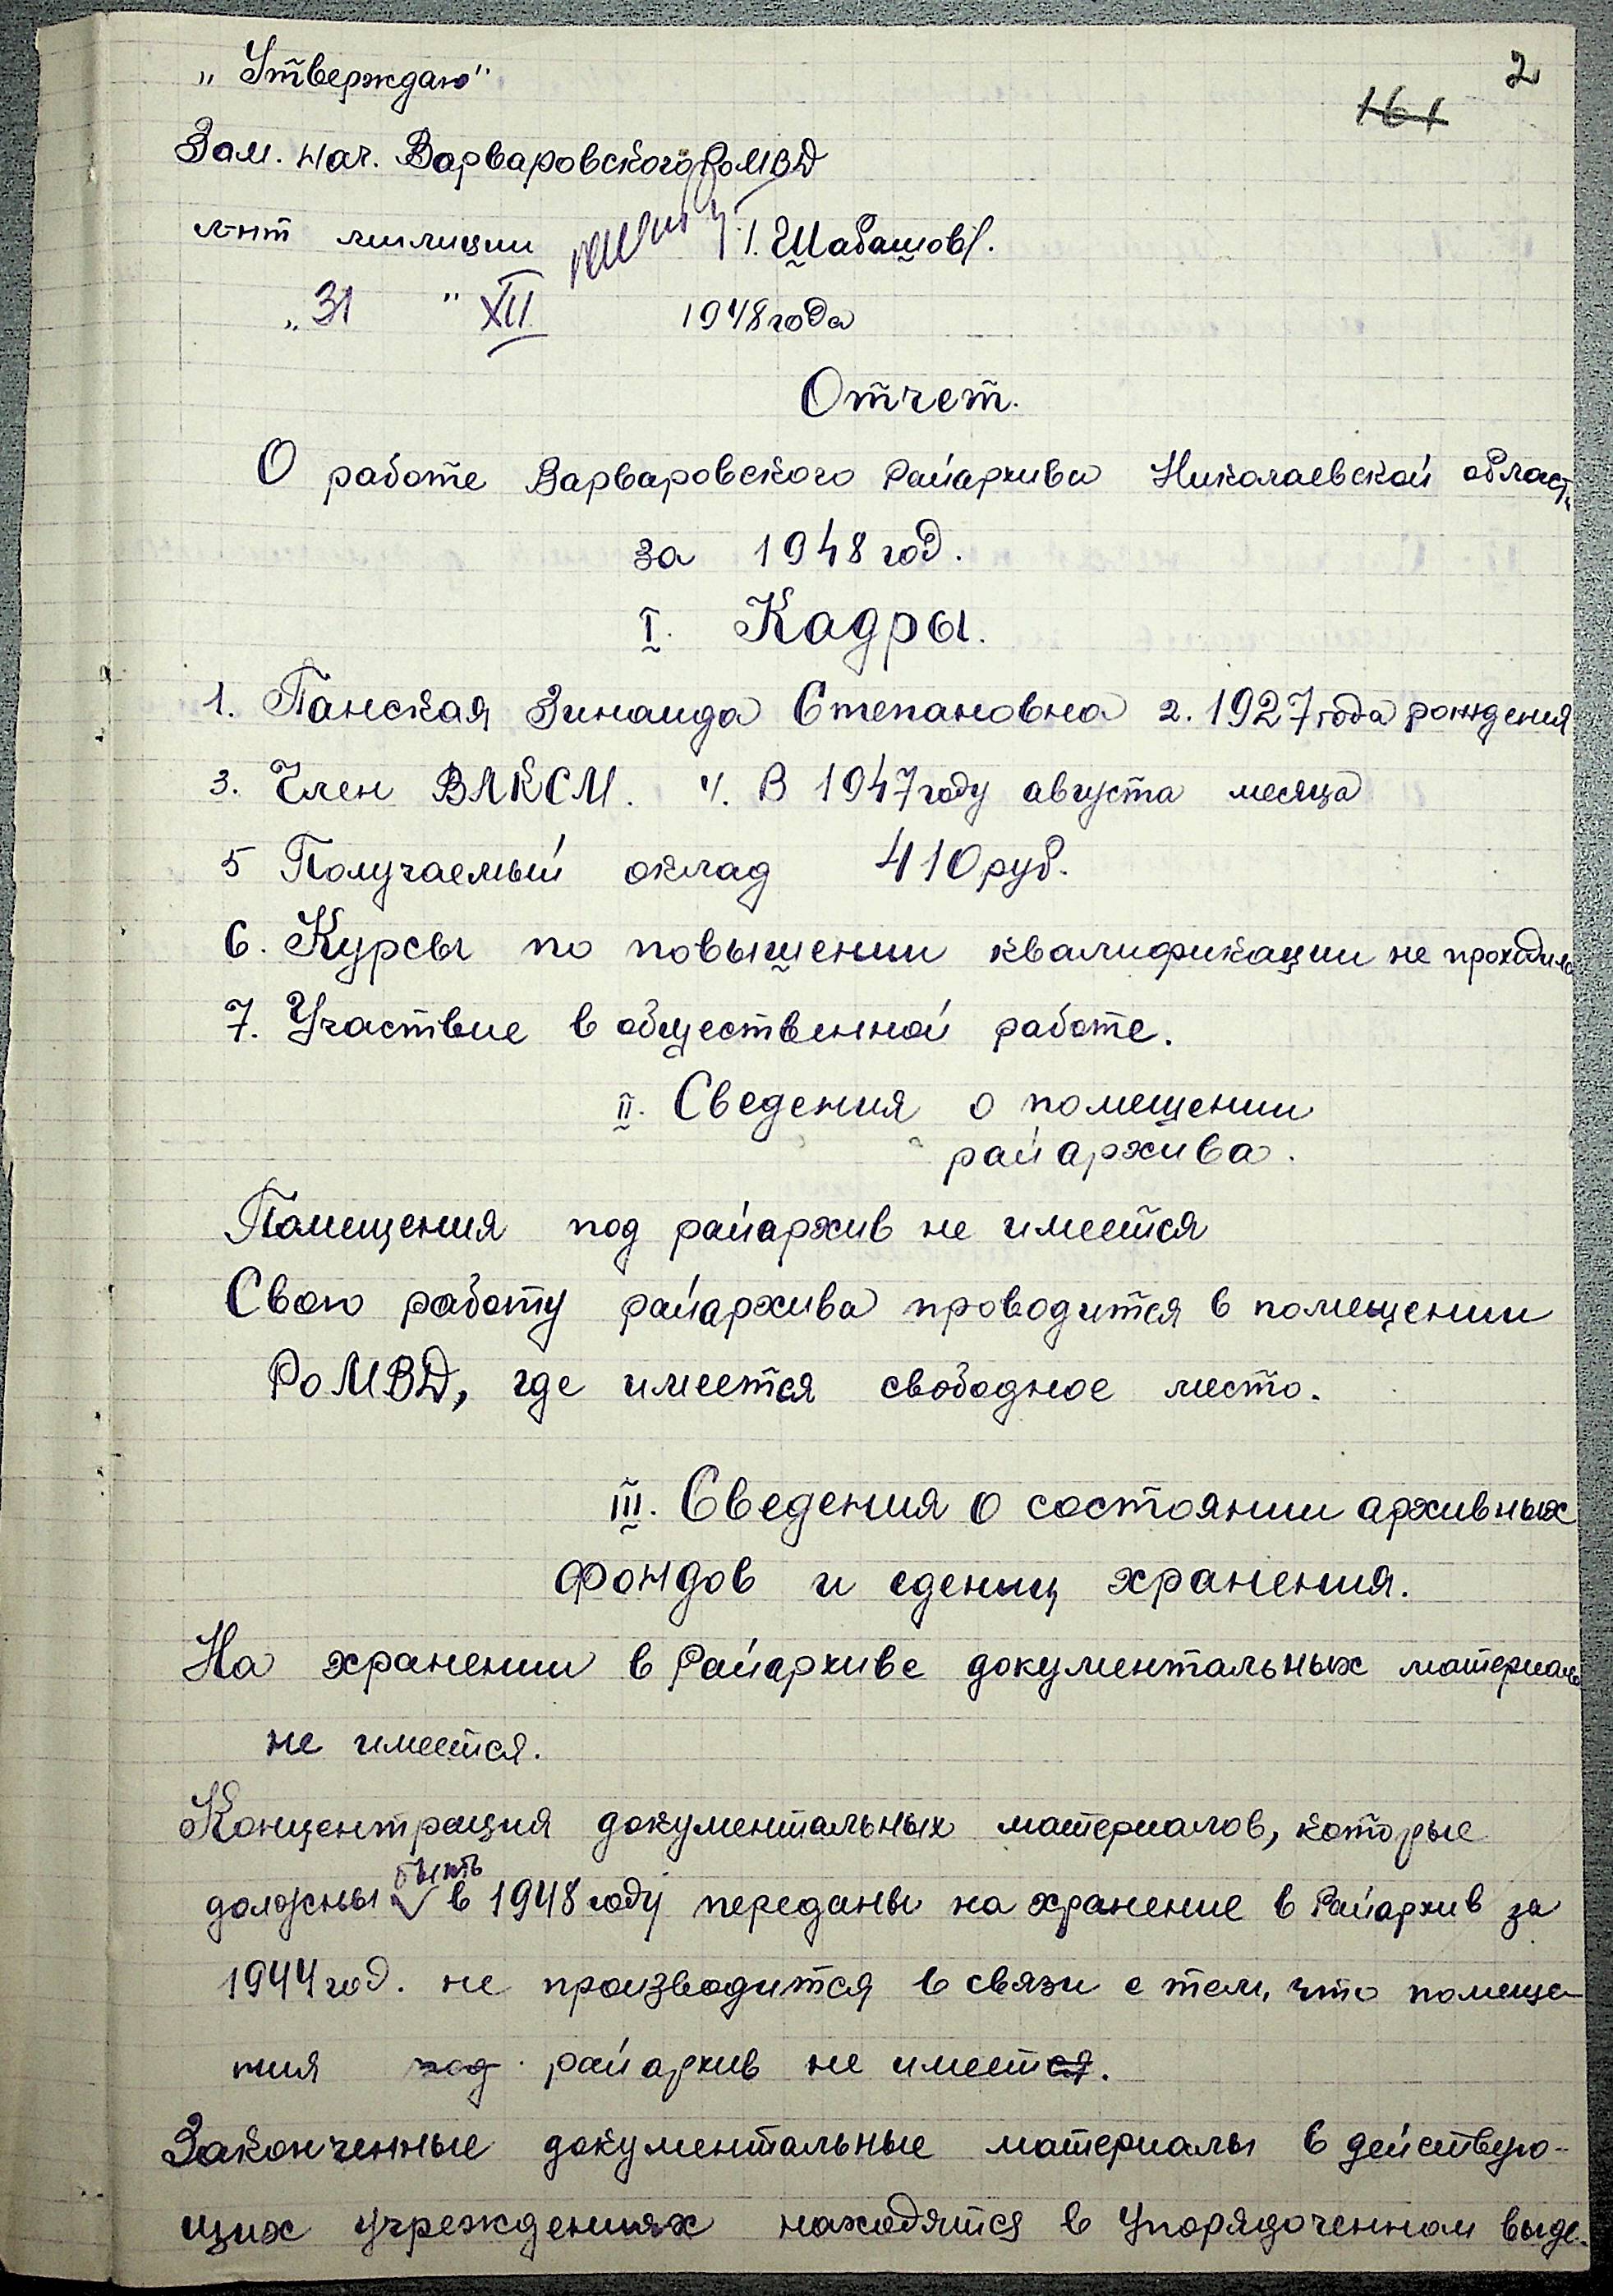 2
161
„Утверждаю"
Зам. нач. Варваровского РоМВД
л-нт милиции /Шабашов/.
„31" XII 1948 года
Отчет.
О работе Варваровского Райархива Николаевской области
за 1948 год.
I. Кадры.
1. Панская Зинаида Степановна 2. 1927 года рождения
3. Член ВЛКСМ. 4. В 1947 году августа месяца
5 Получаемый оклад 410 руб.
6. Курсы по повышении квалификации не проходила
7. Участвие в общественной работе.
II. Сведения о помещении
райархива.
Помещения под райархив не имеется
Свою работу райархива проводится в помещении
РоМВД, где имеется свободное место.
III. Сведения о состоянии архивных
фондов и едениц хранения.
На хранении в Райархиве документальных материалов
не имеется.
Концентрация документальных материалов, которые
должны быть в 1948 году переданы на хранение в Райархив за
1944 год. не производится в связи с тем, что помеще-
ния под райархив не имеется.
Законченные документальные материалы в действую-
щих учреждениях находятся в упорядоченном выде.